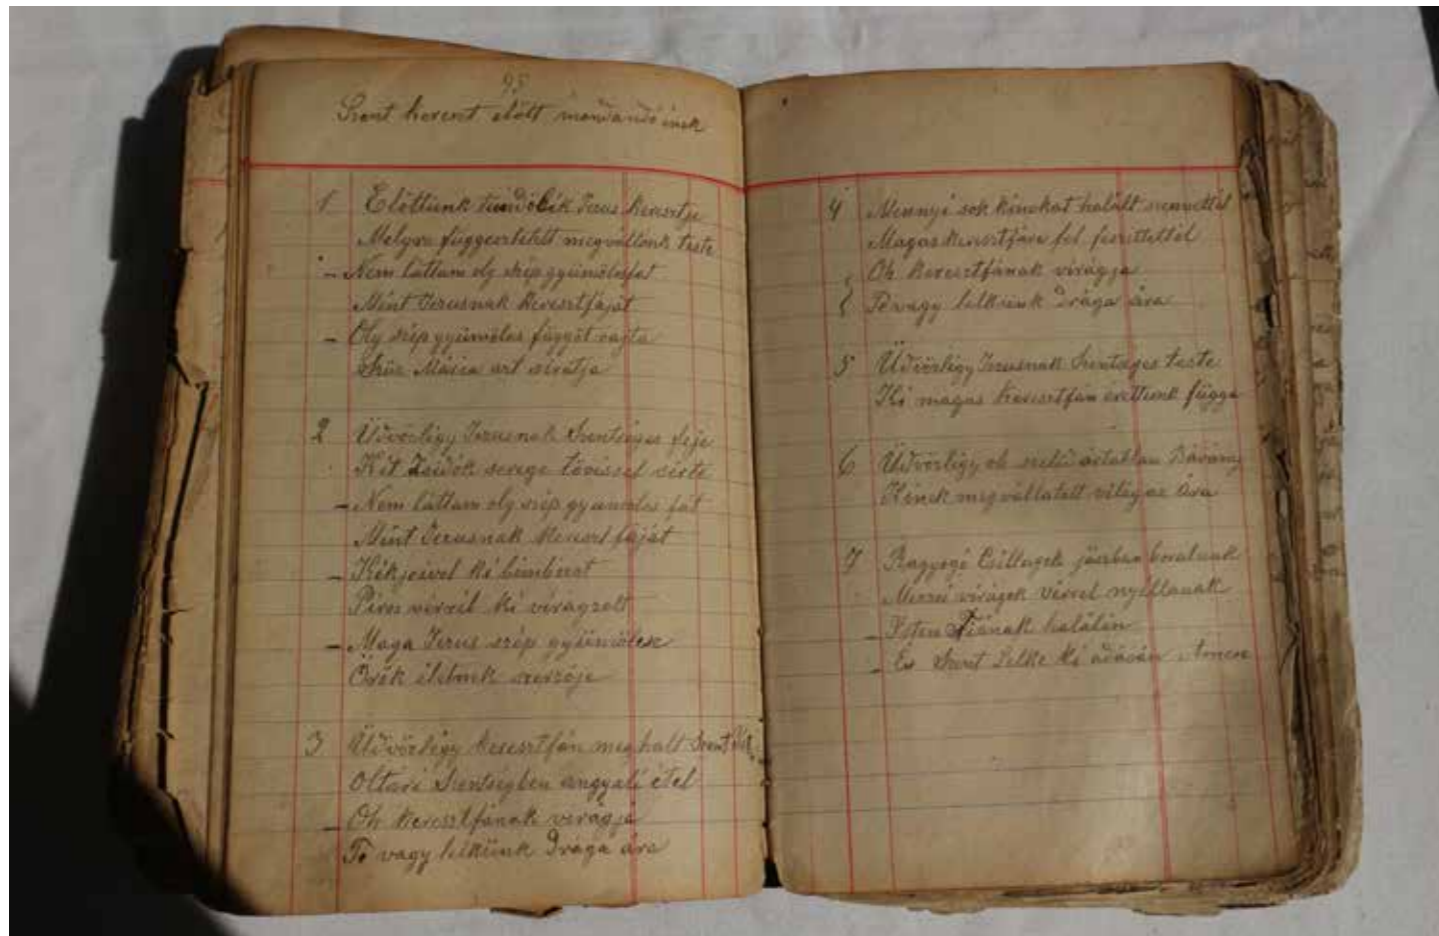 95
Szent kereszt előtt mondandó ének
1 Előttünk tündölik Jezus keresztje
Melyre függesztetett megváltónk teste
- Nem láttam oly szép gyümölcsfát
Mint Jezusnak keresztfáját
- Oly szép gyümölcs függöt rajta
Szüz Mária azt siratja
2 Üdvözlégy Jezusnak Szentséges feje
Kit Zsidók serege tövissel sérte
- Nem láttam oly szép gyümölcs fát
Mint Jezusnak kereszt fáját
- Kékjeivel ki bimbozot
Piros vérrel ki virágzott
- Maga Jezus szép gyümölcse
Örök életnek szerzője
3 Üdvözlégy keresztfán meghalt Szent
Oltári Szentségben angyali étel
- Oh keresztfának virágja
Te vagy lelkünk Drága ára
4 Mennyi sok kinokat halált szenvettél
Magas keresztfára fel feszittettél
Oh keresztfának virágja
Te vagy lelkünk Drága ára
5 Üdvözlégy Jezusnak Szentséges teste
Ki magas keresztfán érettünk függe
6 Üdvözlégy oh szelid ártatlan Bárány
Kinek megváltatott világ az ára
7 Ragyogó Csillagok gyászban borulnak
Mezei virágok vérrel nyillanak
- Isten Fiának halálán
- És Szent Lelke ki adásán Amen